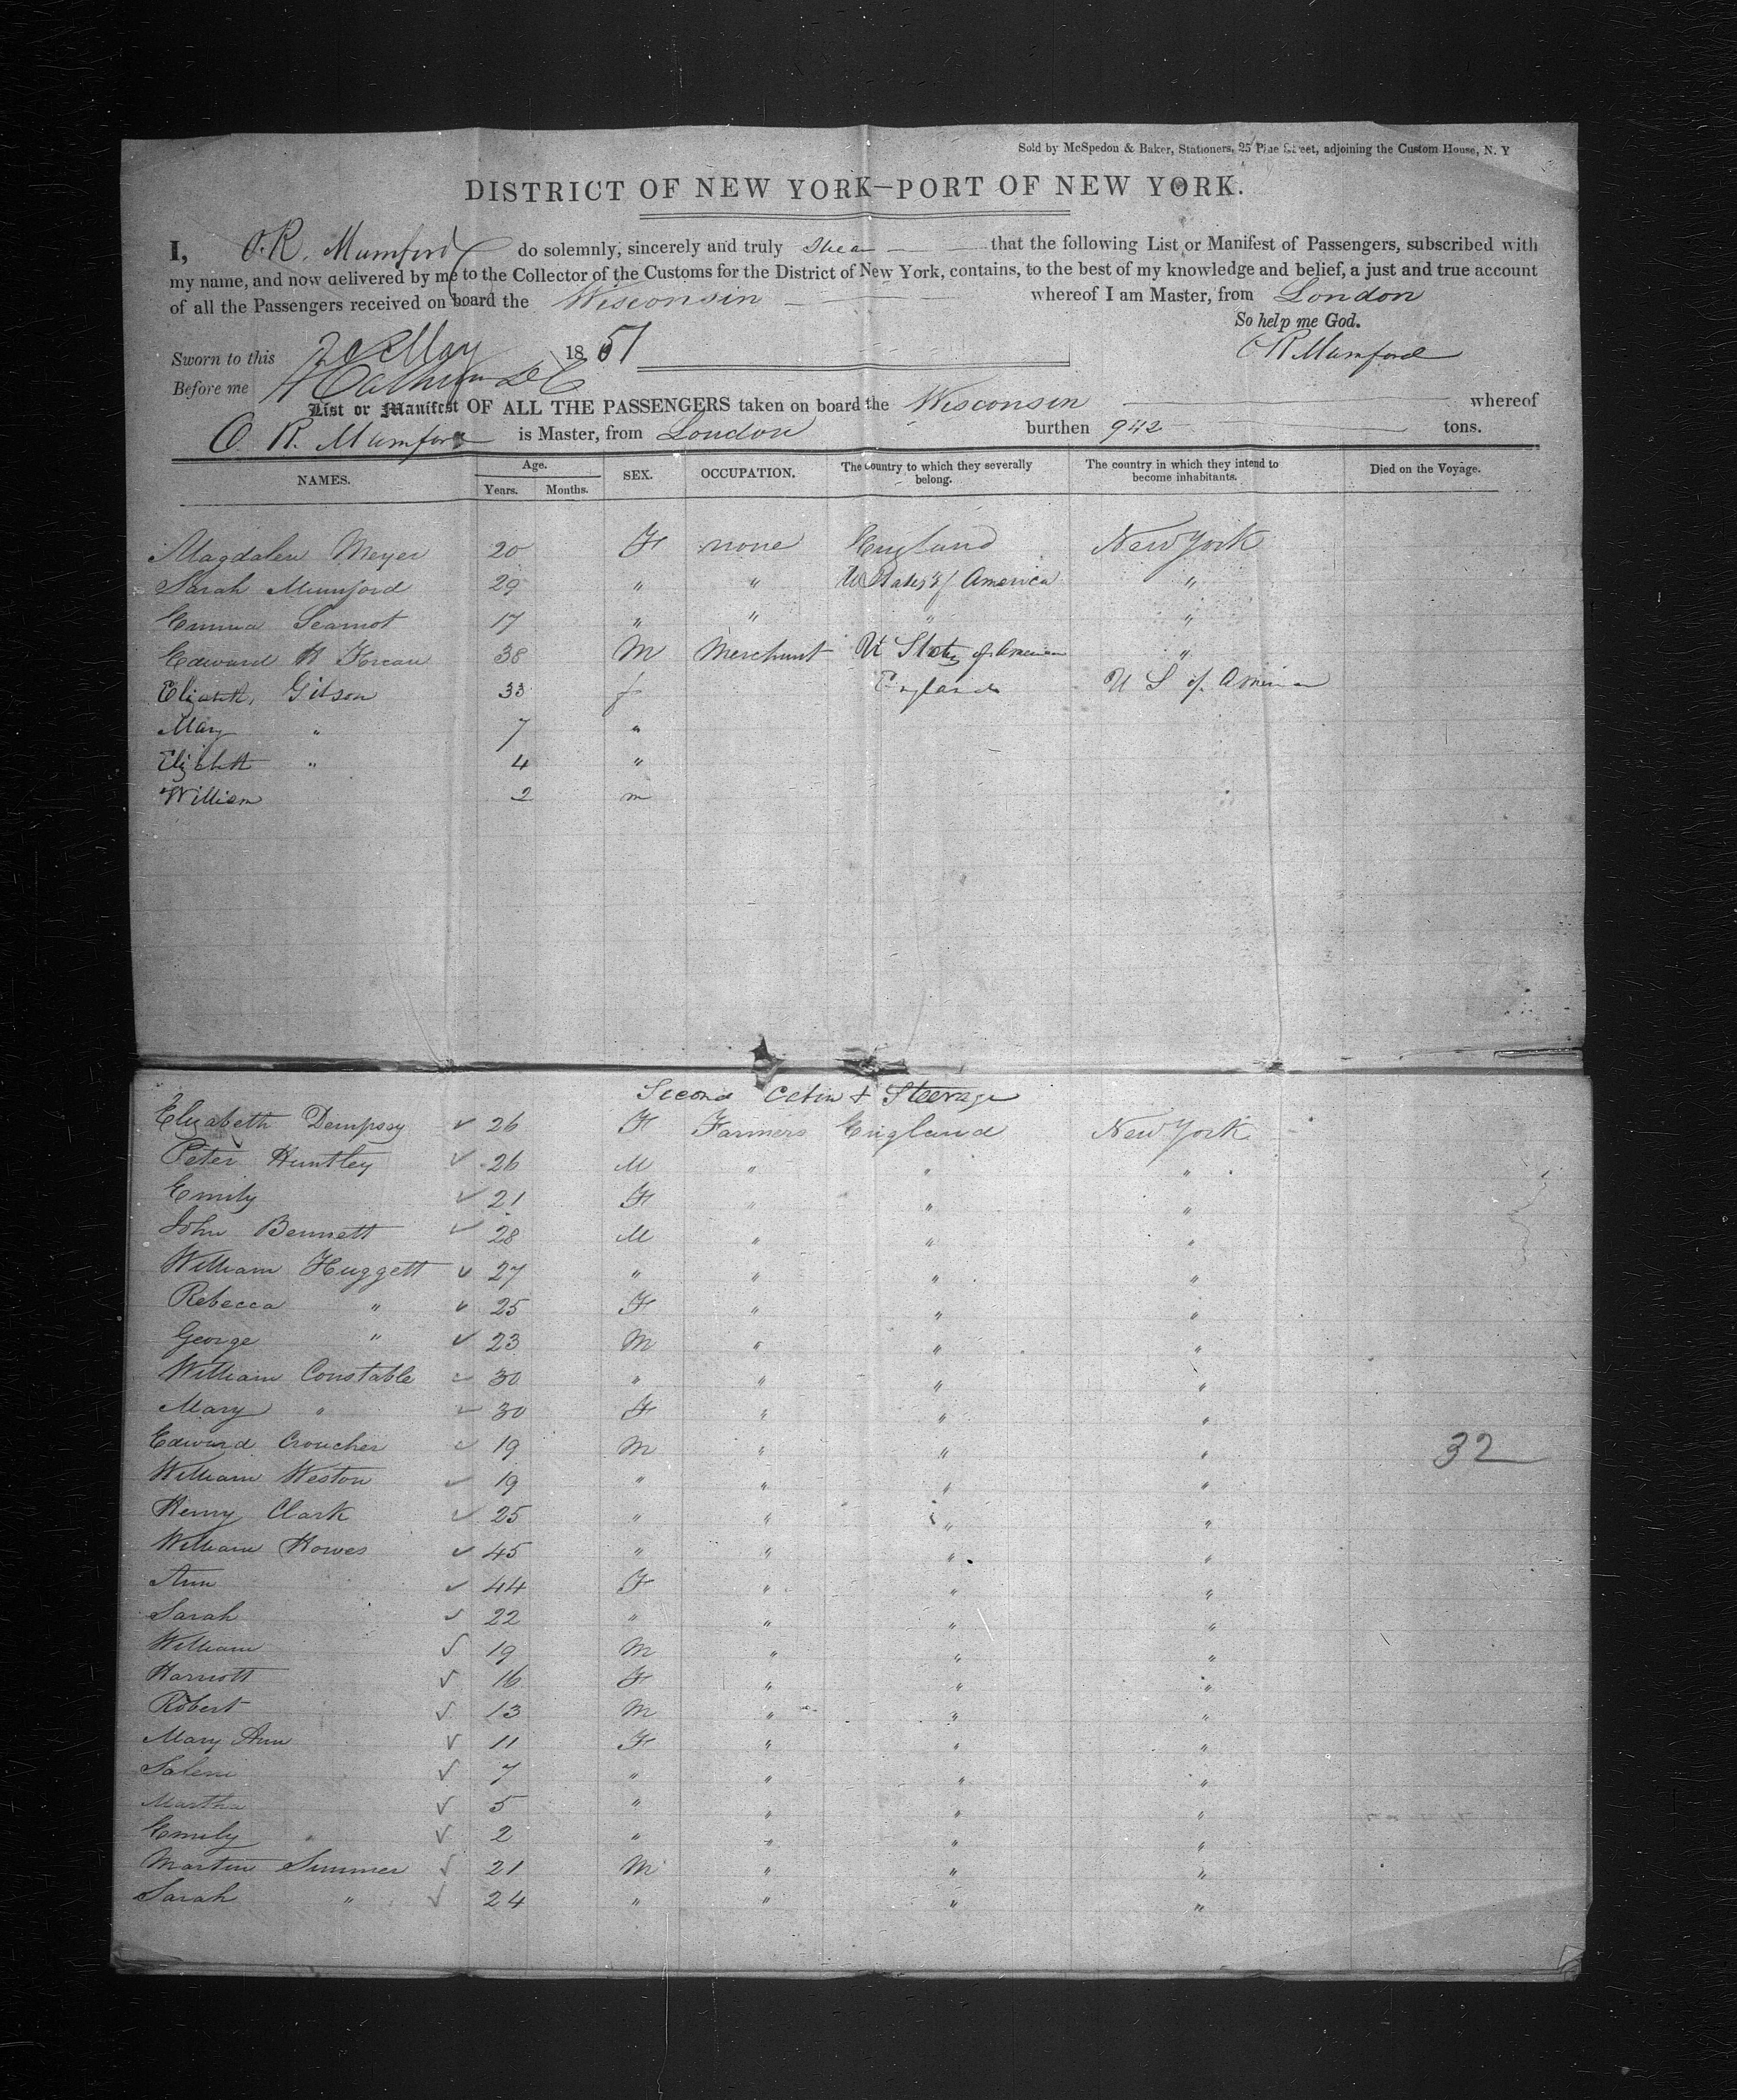 Sold by McSpedon & Baker, Stationers, 25 Pine Street, adjoining the Custom House, N. Y
DISTRICT OF NEW YORK—PORT OF NEW YORK.
I, O. R. Mumford do solemnly, sincerely and truly that the following List or Manifest of Passengers, subscribed with
my name, and now delivered by me to the Collector of the Customs for the District of New York, contains, to the best of my knowledge and belief, a just and true account
of all the Passengers received on board the Wisconsin whereof I am Master, from London
So help me God.
Sworn to this May 1851 O R Mumford
Before me
List or Manifest OF ALL THE PASSENGERS taken on board the Wisconsin whereof
O. R. Mumford is Master, from London burthen 942 tons.
NAMES. Age. Years. Months. SEX. OCCUPATION. The Country to which they severally belong. The country in which they intend to become inhabitants. Died on the Voyage.
Magdalen Meyer 20 F none England New York
Sarah Mumford 29 " " U States of America "
Emma 17 " " " "
Edward H 38 M Merchant U States of America "
Elizabeth Gibson 33 f England U S of America
Mary " 7 "
Elizabeth " 4 "
William 2 m
Second Cabin & Steerage
Elizabeth Dempsey ✓ 26 F Farmers England New York
Peter Huntley ✓ 26 M " " "
Emily ✓ 21 F " " "
John Bennett ✓ 28 M " " "
William Huggett ✓ 27 " " " "
Rebecca " ✓ 25 F " " "
George " ✓ 23 M " " "
William Constable ✓ 30 " " " "
Mary " ✓ 30 F " " "
Edward Croucher ✓ 19 M " " " 32
William Weston ✓ 19 " " " "
Henry Clark ✓ 25 " " " "
William Howes ✓ 45 " " " "
Ann ✓ 44 F " " "
Sarah ✓ 22 " " " "
William ✓ 19 M " " "
Harriott ✓ 16 F " " "
Robert ✓ 13 M " " "
Mary Ann ✓ 11 F " " "
Salem ✓ 7 " " " "
Martha ✓ 5 " " " "
Emily " ✓ 2 " " " "
Martin Summer ✓ 21 M " " "
Sarah " ✓ 24 " " " "